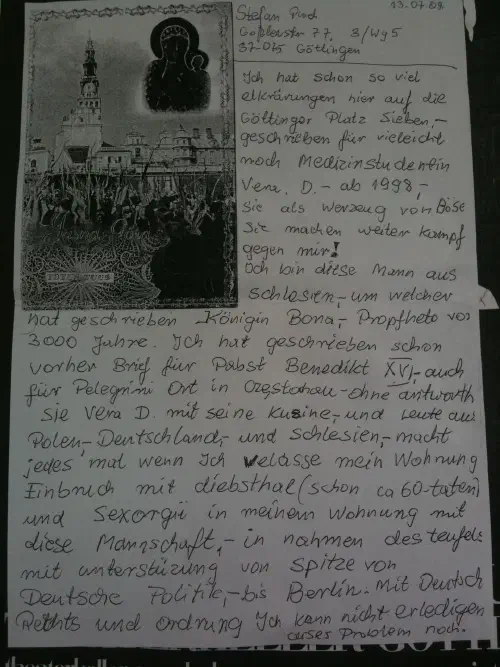 13.07.09
Stefan
Goßlerstr 77. 3/Wg 5
37-075 Göttingen
Ich hat schon so viel
elkrärungen hier auf die
Göttinger Platz Sieben,-
geschrieben für vieleicht
noch Medizinstudentin
Vera. D. - ab 1998,-
Sie als Werzeug von Böse
Sie machen weiter kampf
gegen mir!
Ich bin diese Mann aus
Schlesien,- um welcher
hat geschrieben Königin Bona,- Propfheto vor
3000 Jahre. Ich hat geschrieben schon
vorher Brief für Pabst Benedikt XVI,- auch
für Pelegrini Ort in Częstohau - ohne antworth
Sie Vera D. mit seine Kusine,- und Leute aus
Polen,- Deutschland,- und Schlesien,- macht
jedes mal wenn Ich velasse mein Wohnung
Einbruch mit diebsthal (schon ca 60-taten)
und Sexorgii in meinem Wohnung mit
diese Mannschaft,- in nahmen des teufels
mit unterstüzung von Spitze von
Deutsche Politik,- bis Berlin. Mit Deutsch
Rechts und Ordnung Ich kann nicht erledigen
dises Problem noch.